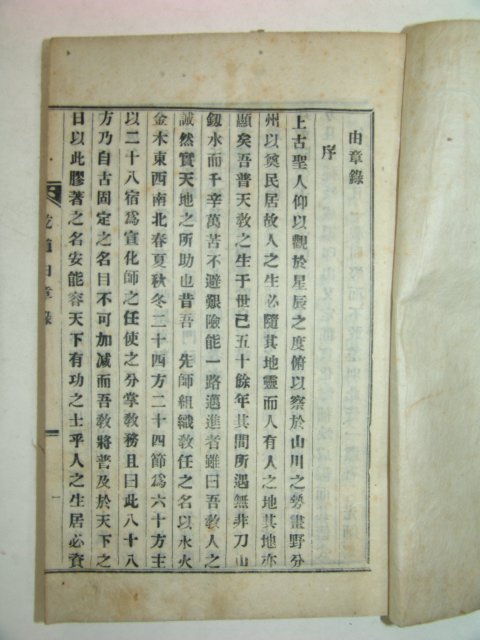 由章錄
序
上古聖人仰以觀於星辰之度俯以察於山川之勢畫野分
州以奠民居故人之生必隨其地靈而人有人之地其地亦
顯矣吾普天教之生于世已五十餘年其間所遇無非刀山
釼水而千辛萬苦不避艱險能一路邁進者雖曰吾教人之
誠然實天地之所助也昔吾 先師組織教任之名以水火
金木東西南北春夏秋冬二十四方二十四節爲六十方主
以二十八宿爲宣化師之任使之分掌教務且曰此八十八
方乃自古固定之名目不可加减而吾教將普及於天下之
日以此膠著之名安能容天下有功之士乎人之生居必資
道由章錄
一